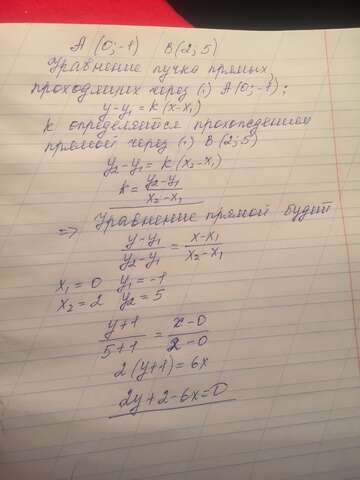 A (0;-1) B(2;5)
Уравнение пучка прямых,
проходящих через (·) A(0;-1):
y-y₁ = k(x-x₁)
k определяется прохождением
прямой через (·) B(2;5)
y₂-y₁ = k(x₂-x₁)
k = (y₂-y₁)/(x₂-x₁)
=> Уравнение прямой будет
(y-y₁)/(y₂-y₁) = (x-x₁)/(x₂-x₁)
x₁=0 y₁=-1
x₂=2 y₂=5
(y+1)/(5+1) = (x-0)/(2-0)
2(y+1)=6x
2y+2-6x=0